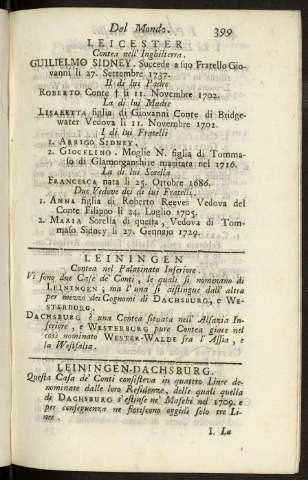 Del Mondo. 399
LEICESTER
Contea nell' Inghilterra.
GUILIELMO SIDNEY. Succede a suo Fratello Gio-
vanni li 27. Settembre 1737.
Il di lui Padre
ROBERTO Conte † li 11. Novembre 1702.
La di lui Madre
LISABETTA figlia di Giovanni Conte di Bridge-
water Vedova li 11. Novembre 1702.
I di lui Fratelli
1. ARRIGO SIDNEY.
2. GIOCELINO. Moglie N. figlia di Tomma-
so di Glamorganshire maritata nel 1716.
La di lui Sorella.
FRANCESCA nata li 23. Ottobre 1686.
Due Vedove dei di lui Fratelli.
1. ANNA figlia di Roberto Reeves Vedova del
Conte Filippo li 24. Luglio 1705.
2. MARIA Sorella di questa, Vedova di Tom-
maso Sidney li 27. Gennajo 1729.
LEININGEN
Contea nel Palatinato Inferiore.
Vi sono due Case de' Conti, le quali si nominano di
LEININGEN, ma l'una si distingue dall' altra
per mezzo dei Cognomi di DACHSBURG, e WE-
STERBURG.
DACHSBURG è una Contea situata nell' Alsazia In-
feriore, e WESTERBURG pure Contea giace nel
così nominato WESTER-WALDE fra l' Assia, e
la Westfalia.
LEININGEN-DACHSBURG.
Questa Casa de' Conti consisteva in quattro Linee de-
nominate dalle loro Residenze, delle quali quella
di DACHSBURG s'estinse ne' Maschi nel 1709. e
per conseguenza ne fioriscono oggidì solo tre Li-
nee.
I. La